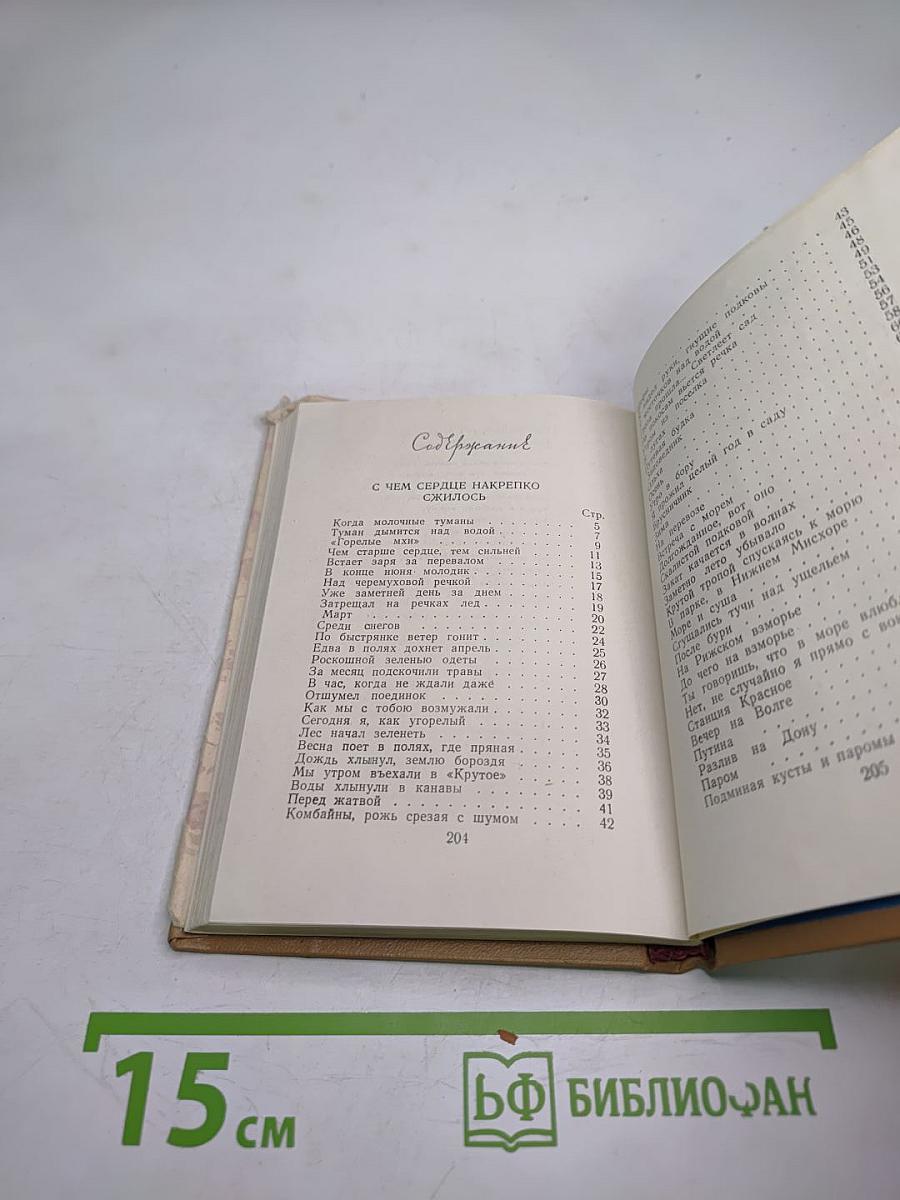 Содержание
С ЧЕМ СЕРДЦЕ НАКРЕПКО
СЖИЛОСЬ
Стр.
Когда молочные туманы . . . . . . . 5
Туман дымится над водой . . . . . . . 7
«Горелые мхи» . . . . . . . . . . 9
Чем старше сердце, тем сильней . . . . 11
Встает заря за перевалом . . . . . . 13
В конце июня молодик . . . . . . . . 15
Над черемуховой речкой . . . . . . . 17
Уже заметней день за днем . . . . . . 18
Затрещал на речках лед . . . . . . . 19
Март . . . . . . . . . . . . . 20
Среди снегов . . . . . . . . . . 22
По быстрянке ветер гонит . . . . . . 24
Едва в полях дохнет апрель . . . . . . 25
Роскошной зеленью одеты . . . . . . 26
За месяц подскочили травы . . . . . . 27
В час, когда не ждали даже . . . . . . 28
Отшумел поединок . . . . . . . . . 30
Как мы с тобою возмужали . . . . . . 32
Сегодня я, как угорелый . . . . . . . 33
Лес начал зеленеть . . . . . . . . . 34
Весна поет в полях, где пряная . . . . . 35
Дождь хлынул, землю бороздя . . . . . 36
Мы утром въехали в «Крутое» . . . . . 38
Воды хлынули в канавы . . . . . . . 39
Перед жатвой . . . . . . . . . . . 41
Комбайны, рожь срезая с шумом . . . . 42
204
43
45
46
48
49
51
53
54
56
57
58
руки, гнущие подковы
над водой
прошла... Светлеет сад
вьется речка
поселка
будка
Ольха
Осень
Утро в бору
прожил целый год в саду
На перевозе
Встреча с морем
Долгожданное, вот оно
Скалистой подковой
Закат качается в волнах
Заметно лето убывало
Крутой тропой спускаясь к морю
В парке, в Нижнем Мисхоре
Море и суша
Сгущались тучи над ущельем
После бури
На Рижском взморье
До чего на взморье
Ты говоришь, что в море
Нет, не случайно я прямо с
Станция Красное
Вечер на Волге
Путина
Разлив на Дону
Паром
Подминая кусты и паромы
205
15 см
БФ БИБЛИОФАН